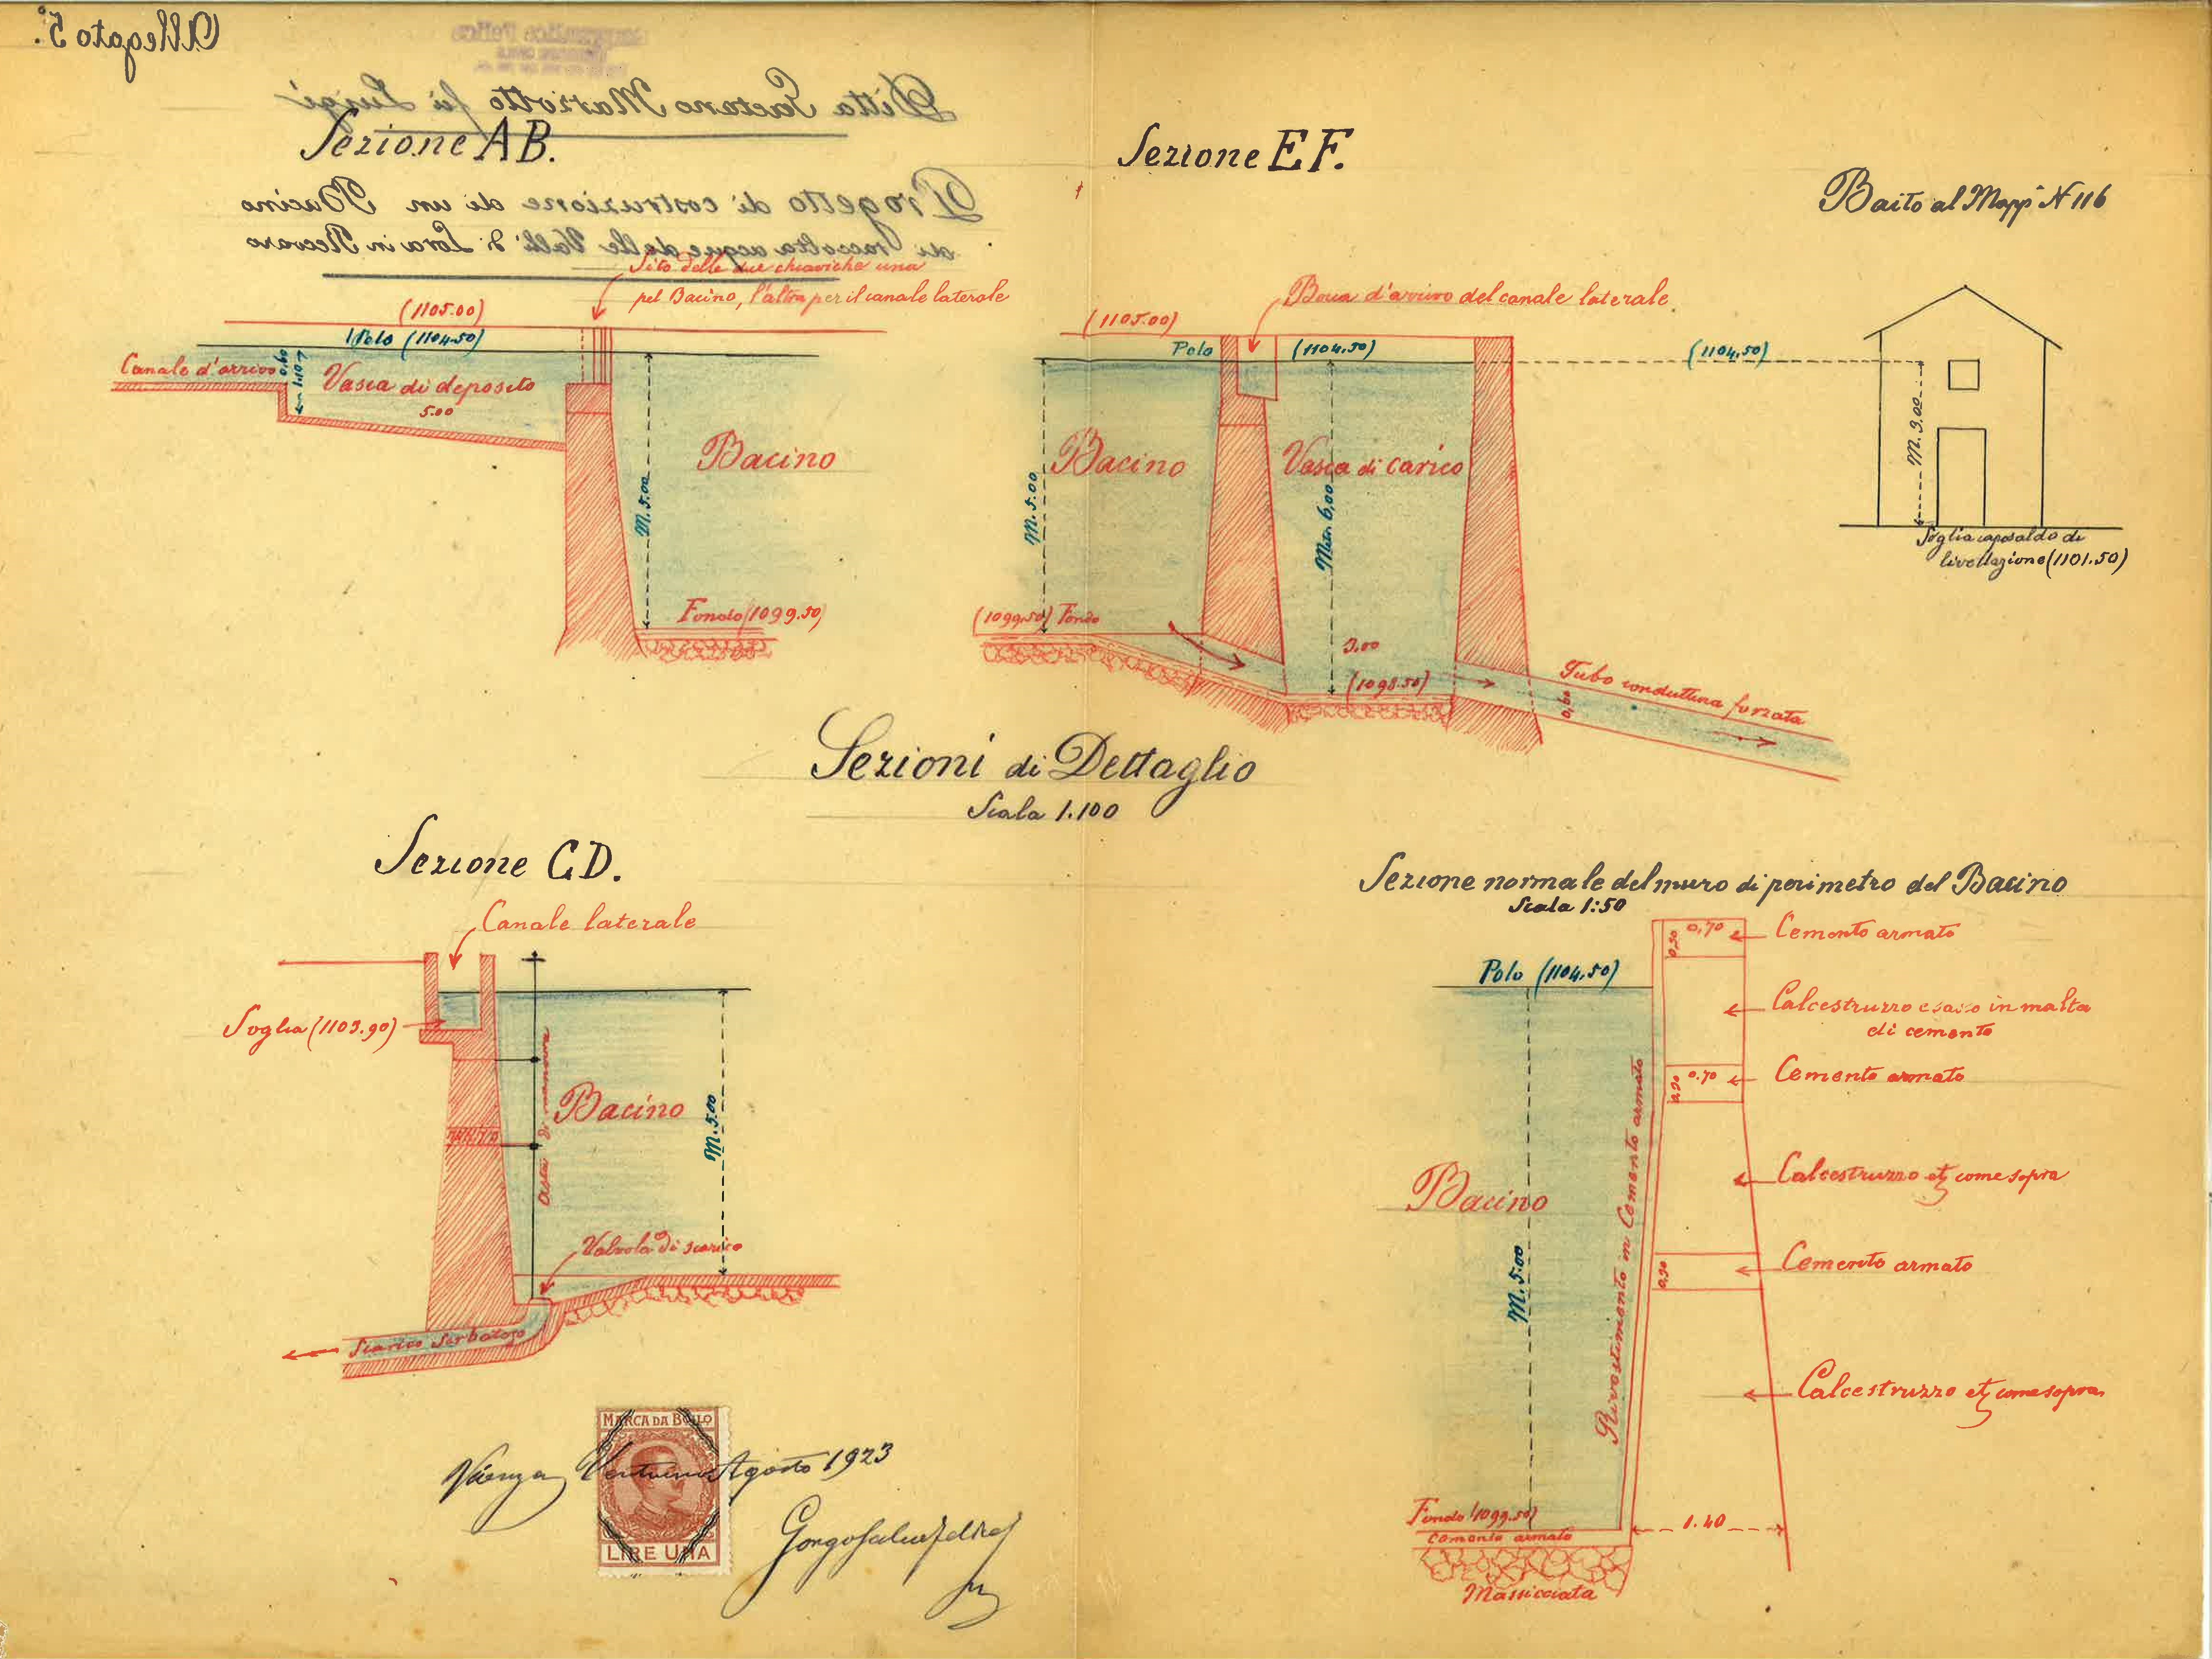 Allegato 5°.
Ditta Gaetano Marzotto fu Luigi
Progetto di costruzione di un Bacino
di raccolta acque delle Valli di Lora in Recoaro
Sezione AB.
Sito delle due chiaviche una
pel Bacino, l'altra per il canale laterale
(1105.00)
Pelo (1104.50)
Canale d'arrivo
0,60
Vasca di deposito
5.00
Bacino
M. 5.00
Fondo (1099.50)
Sezione EF.
Bocca d'arrivo del canale laterale
(1105.00)
Pelo
(1104.50)
(1104,50)
Bacino
Vasca di carico
M. 5.00
Metri 6,00
(1099.50) Fondo
3.00
(1098.50)
Tubo conduttura forzata
0,60
Baito al Mapp. N 116
M. 3.00
Soglia caposaldo di
livellazione (1101.50)
Sezioni di Dettaglio
Scala 1.100
Sezione C.D.
Canale laterale
Soglia (1103.90)
Asta di manovra
Bacino
M. 5.00
Valvola di scarico
Scarico Serbatoio
Sezione normale del muro di perimetro del Bacino
Scala 1:50
0,70
Cemento armato
0,30
Pelo (1104,50)
Calcestruzzo in malta
di cemento
0.70
Cemento armato
0,30
Calcestruzzo etc come sopra
Bacino
Rivestimento in Cemento armato
0,30
Cemento armato
M. 5.00
Calcestruzzo etc come sopra
Fondo (1099.50)
Cemento armato
1.40
Massicciata
MARCA DA BOLLO
Vicenza Ventuno Agosto 1923
LIRE UNA